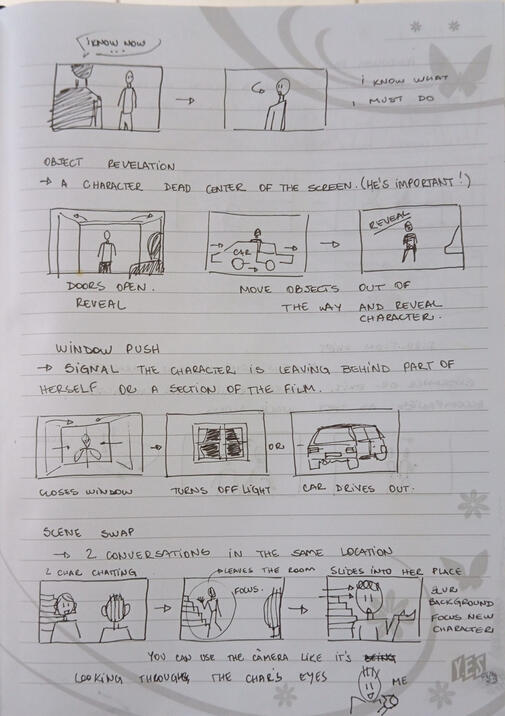 I KNOW NOW
...
→ I KNOW WHAT
I MUST DO
OBJECT REVELATION
→ A CHARACTER DEAD CENTER OF THE SCREEN. (HE'S IMPORTANT!)
CAR
REVEAL
DOORS OPEN.
REVEAL
MOVE OBJECTS OUT OF
THE WAY AND REVEAL
CHARACTER.
WINDOW PUSH
→ SIGNAL THE CHARACTER IS LEAVING BEHIND PART OF
HERSELF OR A SECTION OF THE FILM.
OR
CLOSES WINDOW
TURNS OFF LIGHT
CAR DRIVES OUT.
SCENE SWAP
→ 2 CONVERSATIONS IN THE SAME LOCATION
2 CHAR CHATTING
LEAVES THE ROOM
SLIDES INTO HER PLACE
FOCUS.
BLUR
BACKGROUND
FOCUS NEW
CHARACTER
YOU CAN USE THE CAMERA LIKE IT'S BEING
LOOKING THROUGH THE CHAR'S EYES
ME
YES